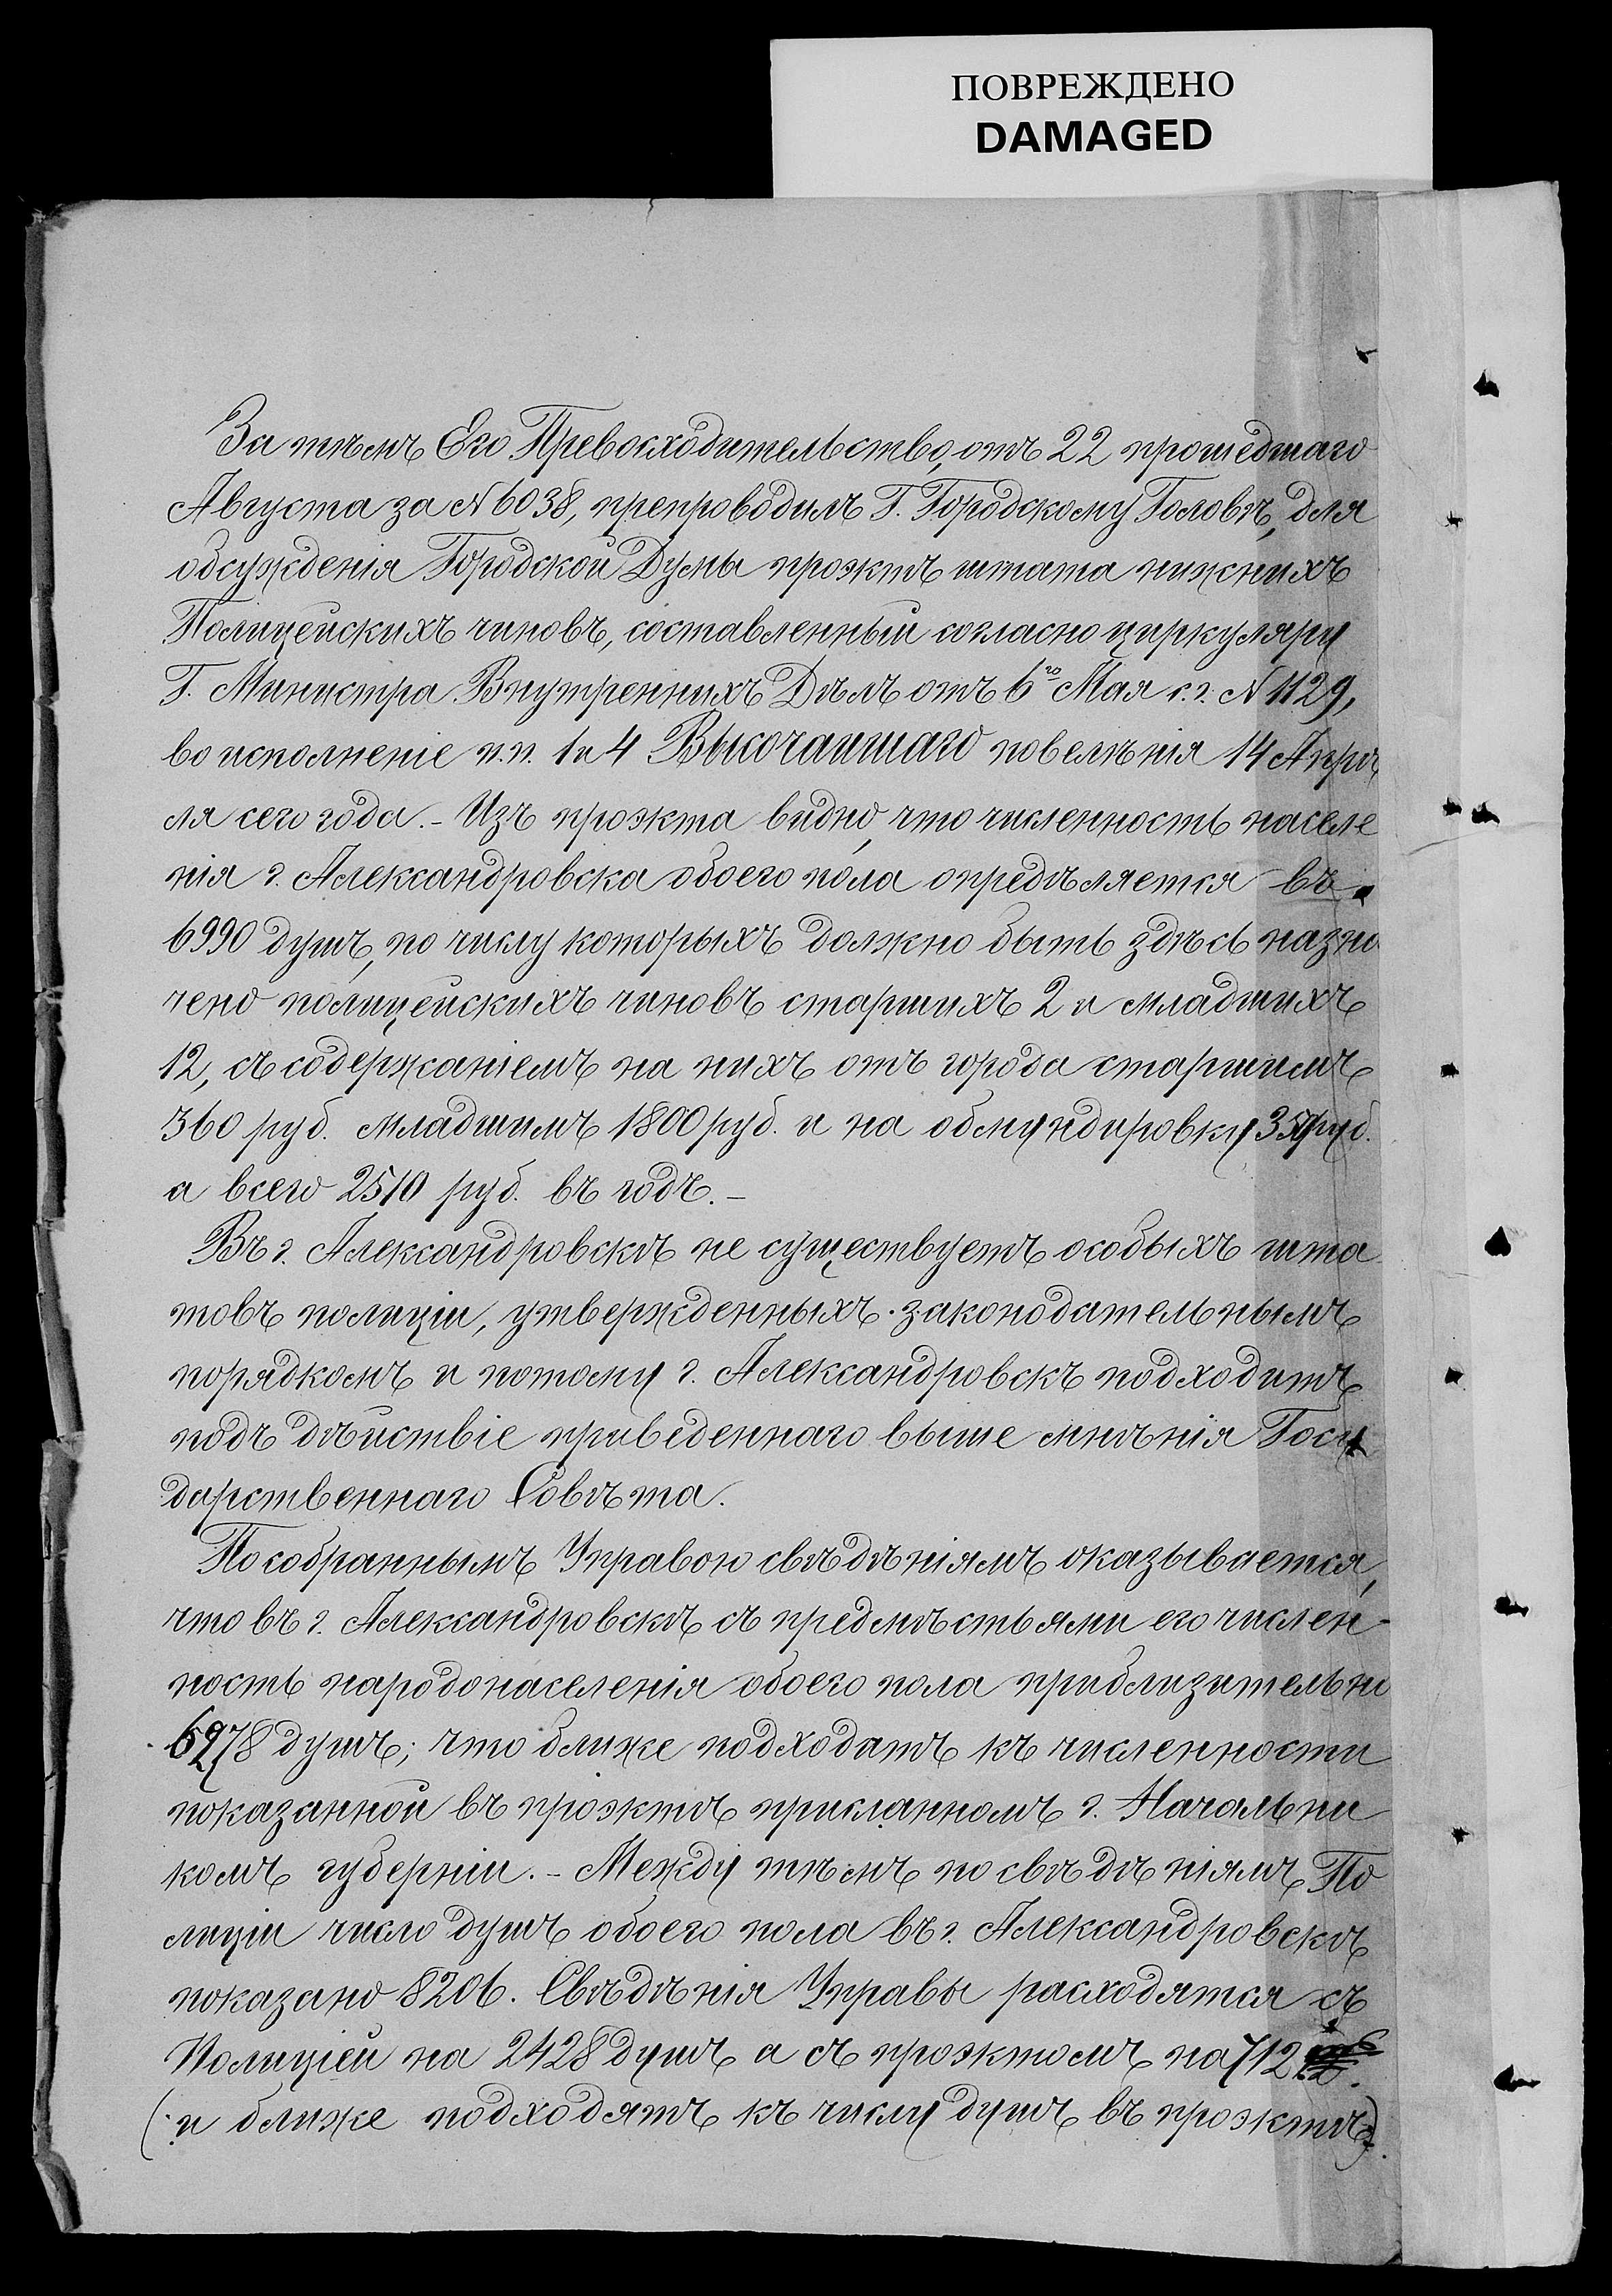 ПОВРЕЖДЕНО
DAMAGED
За тѣмъ Его Превосходительство, отъ 22 прошедшаго
Августа за № 6038, препроводилъ Г. Городскому Головѣ, для
обсужденія Городской Думы проэктъ штата нижнихъ
Полицейскихъ чиновъ, составленный согласно циркуляру
Г. Министра Внутреннихъ Дѣлъ отъ 6го Мая с. г. № 1129,
во исполненіе п.п. 1 и 4 Высочайшаго повелѣнія 14 Апрѣ
ля сего года. – Изъ проэкта видно, что численность населе
нія г. Александровска обоего пола опредѣляется въ
6990 душъ, по числу которыхъ должно быть здѣсь назна
чено полицейскихъ чиновъ старшихъ 2 и младшихъ
12, съ содержаніемъ на нихъ отъ города старшимъ
360 руб. младшимъ 1800 руб. и на обмундировку руб.
а всего 2510 руб. въ годъ. –
Въ г. Александровскѣ не существуетъ особыхъ шта
товъ полиціи, утвержденныхъ законодательнымъ
порядкомъ и потому г. Александровскъ подходитъ
подъ дѣйствіе приведеннаго выше мнѣнія Госу
дарственнаго Совѣта.
По собраннымъ Управою свѣдѣніямъ оказывается,
что въ г. Александровскѣ съ предмѣстьями его числен-
ность народонаселенія обоего пола приблизительно
душъ; что ближе подходатъ къ численности
показанной въ проэктѣ присланномъ г. Начальни
комъ губерніи. – Между тѣмъ по свѣдѣніямъ По
лиціи число душъ обоего пола въ г. Александровскѣ
показано 8206. Свѣдѣнія Управы расходятся съ
Полиціей на 2428 душъ а съ проэктомъ на 712
(и ближе подходятъ къ числу душъ въ проэктѣ).